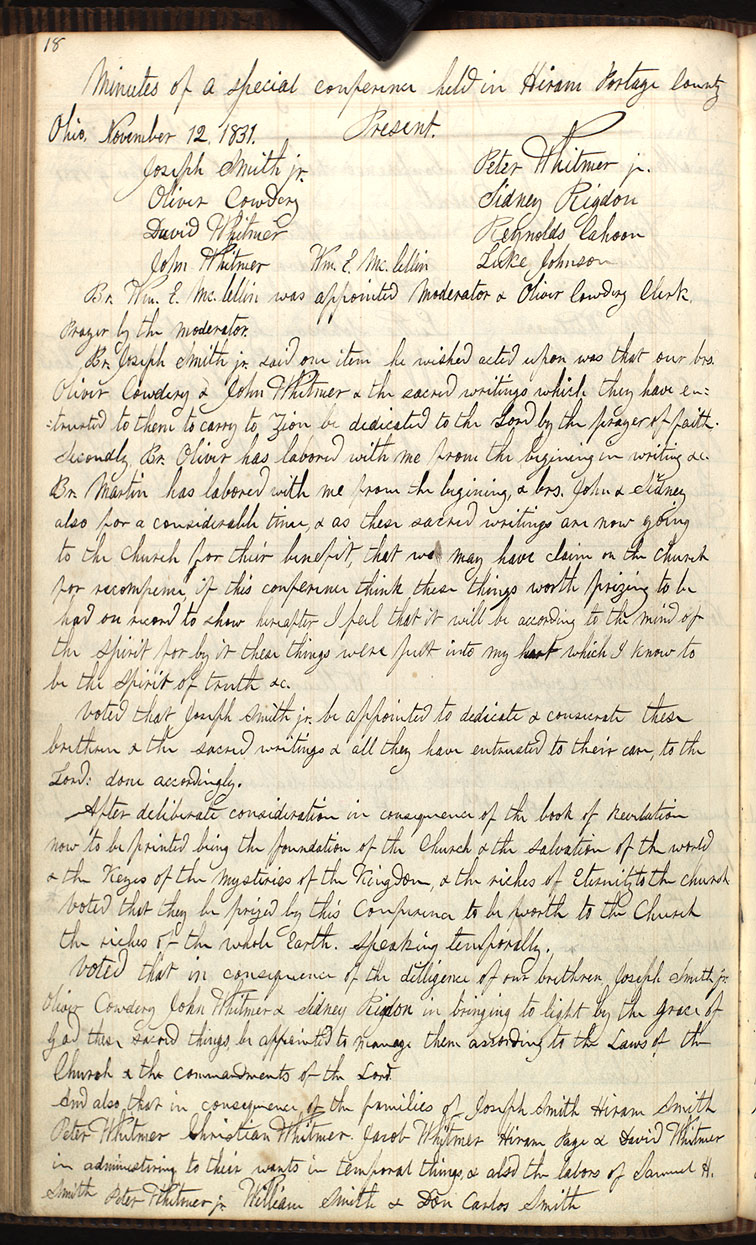 18
Minutes of a special conference held in Hiram Portage County
Ohio. November 12, 1831. Present.
Joseph Smith jr. Peter Whitmer jr.
Oliver Cowdery Sidney Rigdon
David Whitmer Reynolds Cahoon
John Whitmer Wm. E. Mc.lellin Luke Johnson
Br. Wm. E. Mc.lellin was appointed Moderator & Oliver Cowdery Clerk,
Prayer by the moderator.
Br. Joseph Smith jr. said one item he wished acted upon was that our brs.
Oliver Cowdery & John Whitmer & the sacred writings which they have en=
=trusted to them to carry to Zion be dedicated to the Lord by the prayer of faith.
Secondly, Br. Oliver has labored with me from the begining in writing &c.
Br. Martin has labored with me from the begining, & brs. John & Sidney
also for a considerable time, & as these sacred writings are now going
to the Church for their benefit, that we may have claim on the Church
for recompense, if this conference think these things worth prizing to be
had on record to show hereafter I feel that it will be according to the mind of
the spirit for by it these things were put into my heart which I know to
be the Spirit of truth &c.
Voted that Joseph Smith jr. be appointed to dedicate & consecrate these
brethren & the sacred writings & all they have entrusted to their care, to the
Lord: done accordingly.
After deliberate consideration in consequence of the book of Revelation
now to be printed being the foundation of the Church & the salvation of the world
& the Keyes of the mysteries of the Kingdom, & the riches of Eternity to the church
Voted that they be prized by this Conference to be worth to the Church
the riches of the whole Earth. speaking temporally.
Voted that in consequence of the dilligence of our brethren, Joseph Smith jr.
Oliver Cowdery John Whitmer & Sidney Rigdon in bringing to light by the grace of
God these sacred things, be appointed to manage them according to the Laws of the
Church & the commandments of the Lord
And also, that in consequence of the families of Joseph Smith Hiram Smith
Peter Whitmer Christian Whitmer. Jacob Whitmer Hiram Page & David Whitmer
in administiring to their wants in temporal things, & also the labors of Samuel H.
Smith Peter Whitmer jr. William Smith & Don Carlos Smith